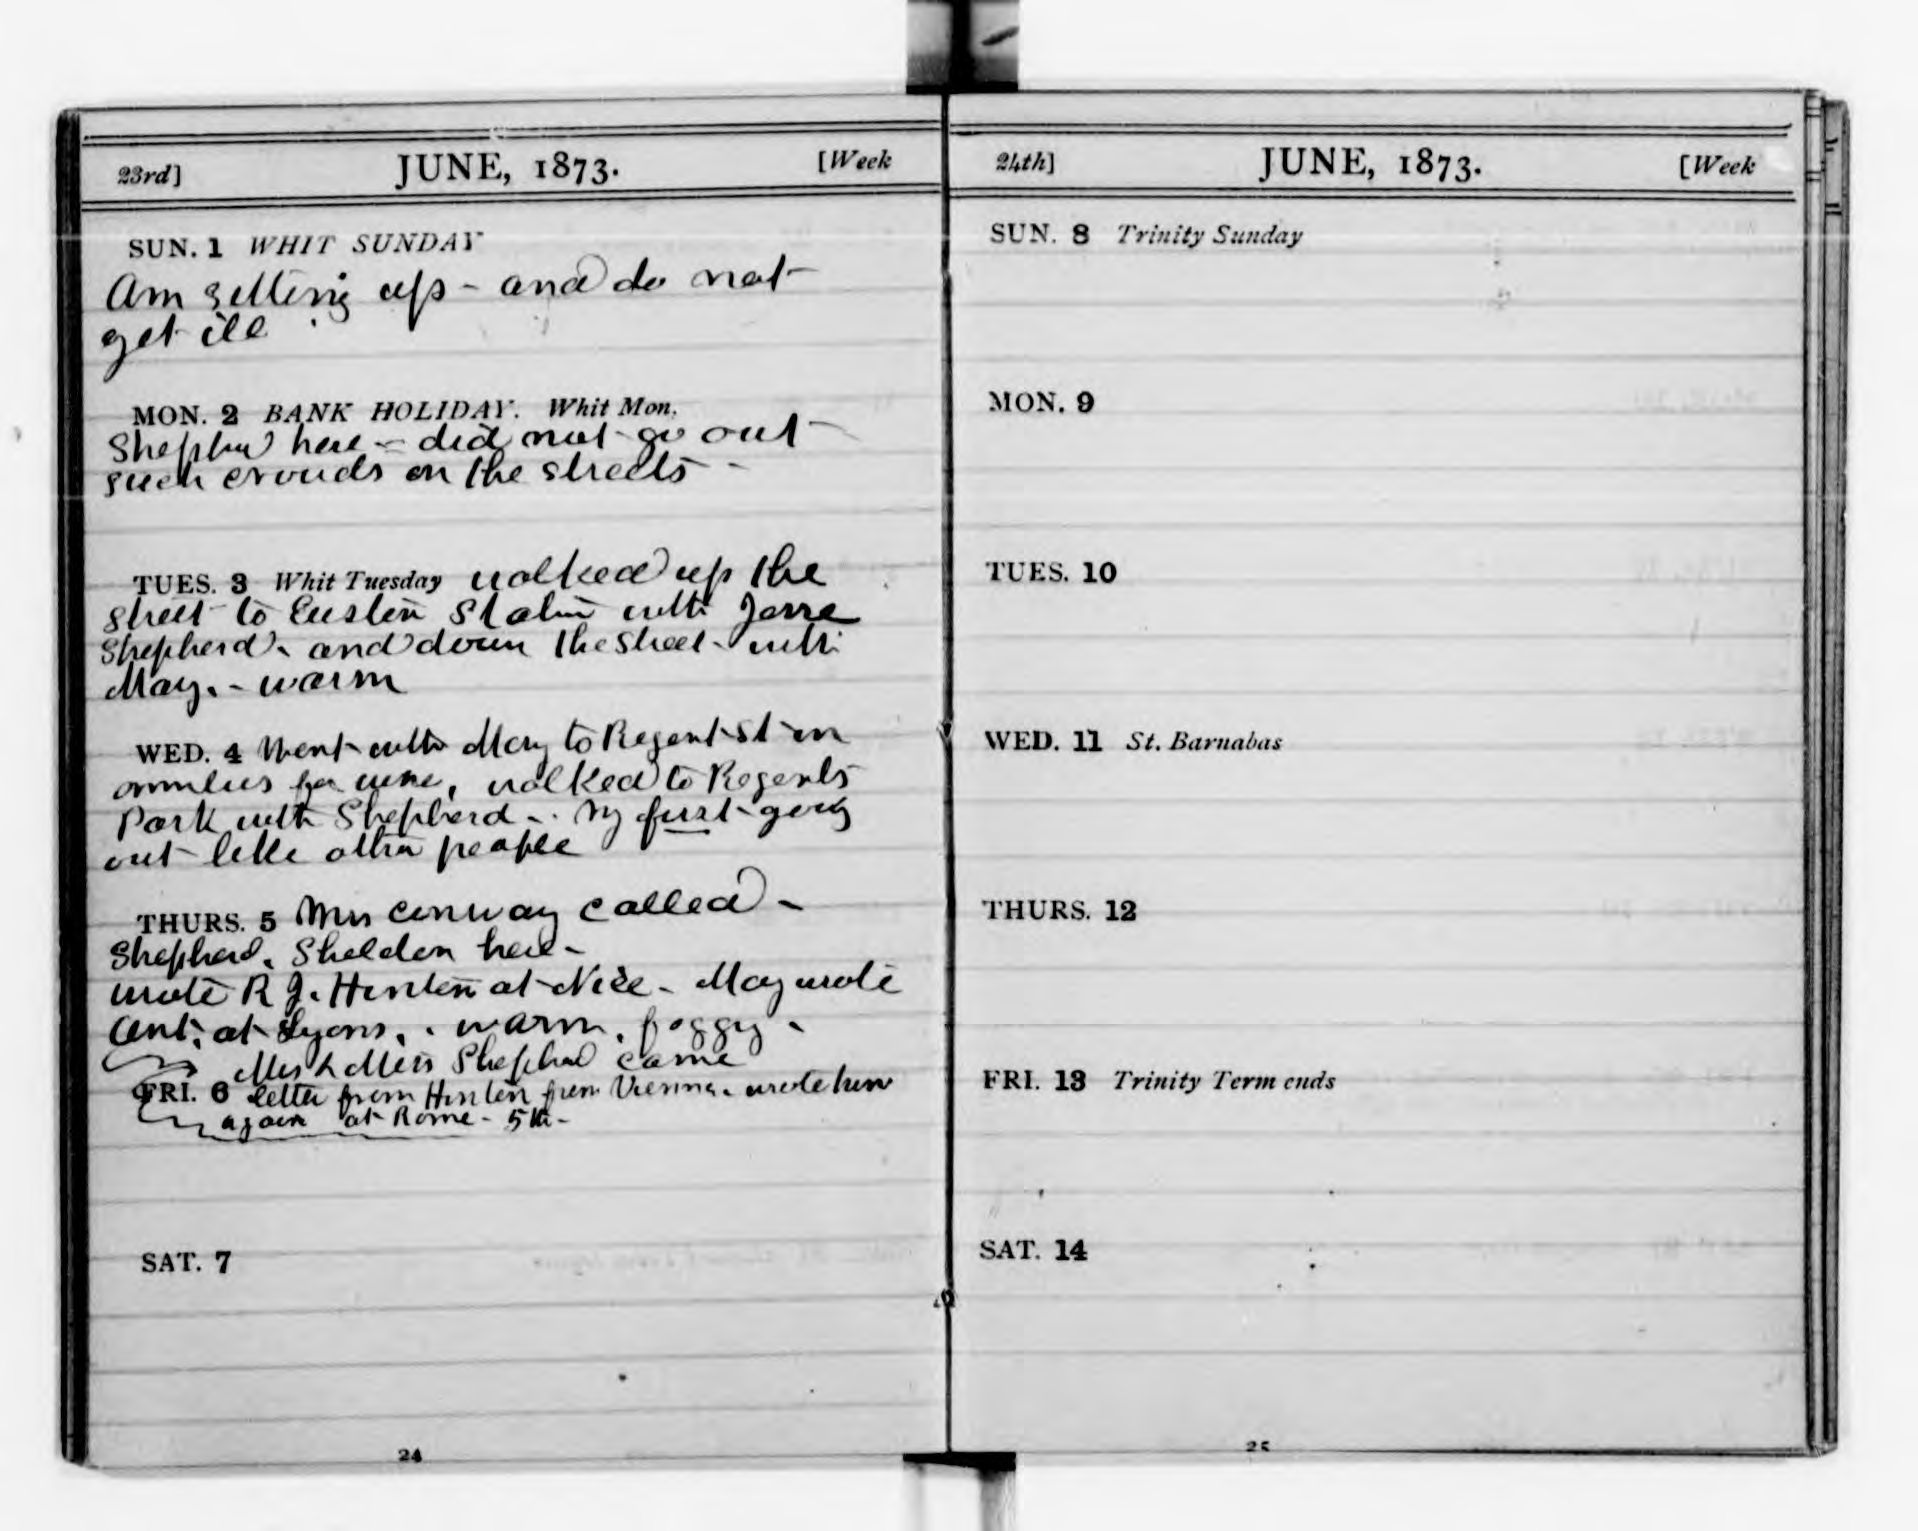 23rd] JUNE, 1873. [Week
SUN. 1 WHIT SUNDAY
Am getting up - and do not
get ill
MON. 2 BANK HOLIDAY. Whit Mon.
Shepherd here - did not go out -
such crouds on the streets -
TUES. 3 Whit Tuesday walked up the
street to Euston Station with
Shepherd. and down the street - with
May. - warm
WED. 4 Went with May to Regent St in
omnibus for wine, walked to Regents
Park with Shepherd - . My first going
out like other people
THURS. 5 Mrs Conway called -
Shepherd, Sheldon here -
wrote R J. Hinton at Nice - May wrote
at Lyons, . warm, foggy -
Mrs & Miss Shepherd came
FRI. 6 letter from Hinton from Vienna. wrote him
again at Rome - 5th -
SAT. 7
24
24th] JUNE, 1873. [Week
SUN. 8 Trinity Sunday
MON. 9
TUES. 10
WED. 11 St. Barnabas
THURS. 12
FRI. 13 Trinity Term ends
SAT. 14
25